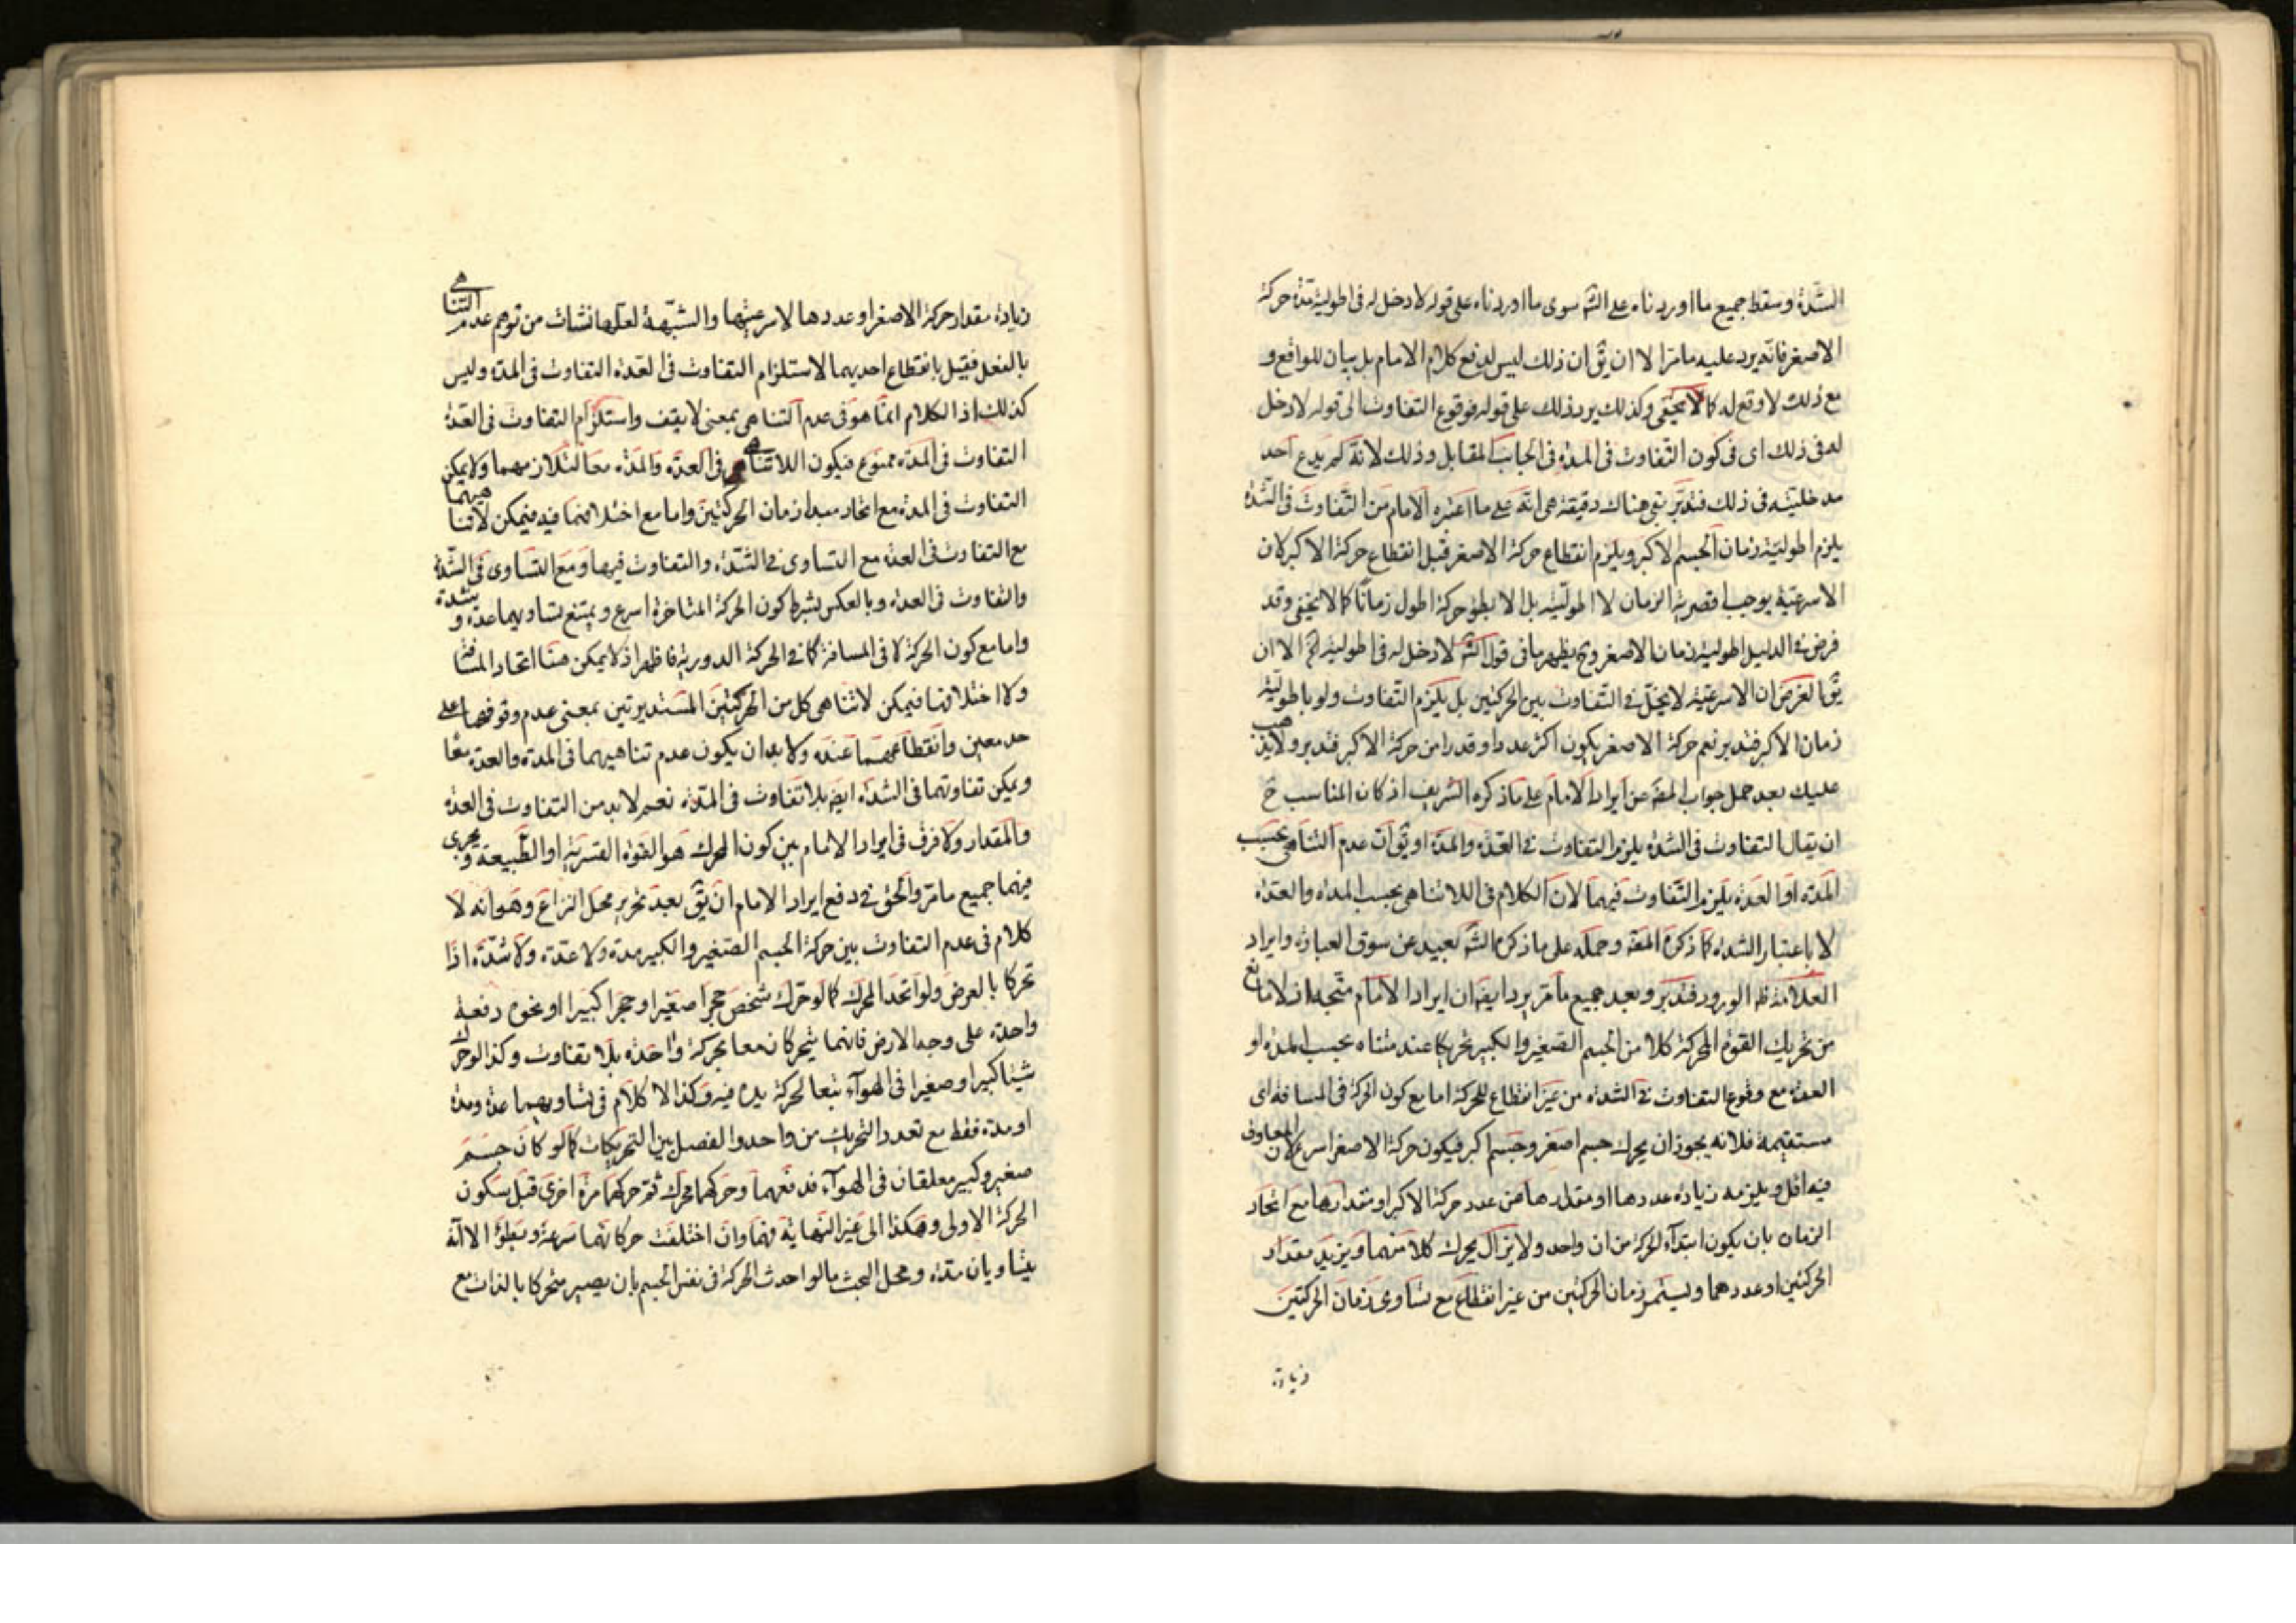 الشدة وسقط جميع ما اوردناه على الشه سوى ما اوردناه على قوله لا دخل له فى اطولية مدة حركة
الاصغر فانه يرد عليه ما مر الا ان يق ان ذلك ليس لدفع كلام الامام بل بيان للواقع و
مع ذلك لا وقع له كما لا يخفى وكذلك يرد ذلك على قوله فوقوع التفاوت الى قوله لا دخل
له فى ذلك اى فى كون التفاوت فى المدة فى الجانب المقابل وذلك لانه لم يدع احد
مدخليته فى ذلك فتدبر بقى هناك دقيقة هى انه على ما اعتبره الامام من التفاوت فى الشدة
يلزم اطولية زمان الجسم الاكبر ويلزم انقطاع حركة الاصغر قبل انقطاع حركة الاكبر لان
الاسرعية يوجب اقصرية الزمان لا اطوليته بل الابطؤ حركة اطول زمانا كما لا يخفى وقد
فرض فى الدليل اطولية زمان الاصغر وح يظهر ما فى قول الشه لا دخل له فى اطوليته الا ان
يق الغرض ان الاسرعية لا يخل فى التفاوت بين الحركتين بل يلزم التفاوت ولو باطولية
زمان الاكبر فتدبر نعم حركة الاصغر يكون اكثر عددا وقدرا من حركة الاكبر فتدبر ولا يذهب
عليك بعد حمل جواب المصه عن ايراد الامام على ما ذكره الشريف اذ كان المناسب ح
ان يقال التفاوت فى الشدة يلزم التفاوت فى العدة والمدة او يق ان عدم التناهى بحسب
المدة او العدة يلزم التفاوت فيهما لان الكلام فى اللاتناهى بحسب المدة والعدة
لا باعتبار الشدة كما ذكره المصه وحمله على ما ذكره الشه بعيد عن سوق العبارة وايراد
العلامة ظه الورود فتدبر وبعد جميع ما مر يرد ايضه ان ايراد الامام متجه اذ لا مانع
من تحريك القوة المحركة كلا من الجسم الصغير والكبير تحريكا عند متناه بحسب المدة او
العدة مع وقوع التفاوت فى الشدة من غير انقطاع للحركة اما مع كون الحركة فى المسافة اى
مستقيمة فلانه يجوز ان يحرك جسم اصغر وجسم اكبر فيكون حركة الاصغر اسرع لان المعاوق
فيه اقل ويلزمه زيادة عددها او مقدارها من عدد حركة الاكبر او مقدارها مع اتحاد
الزمان بان يكون ابتداء الحركة من ان واحد ولا يزال يحرك كلا منهما ويزيد مقدار
الحركتين او عددهما ويستمر زمان الحركتين من غير انقطاع مع تساوى زمان الحركتين
زيادة
زيادة مقدار حركة الاصغر او عددها لاسرعيتها والشبهة لعلها نشات من توهم عدم التناهى
بالفعل فقيل بانقطاع احديهما لاستلزام التفاوت فى العدة التفاوت فى المدة وليس
كذلك اذ الكلام انما هو فى عدم التناهى بمعنى لا يقف واستلزام التفاوت فى العدة
التفاوت فى المدة ممنوع فيكون اللاتناهى فى العدة والمدة معا لتلازمهما ولا يمكن
التفاوت فى المدة مع اتحاد مبدا زمان الحركتين واما مع اختلافهما فيه فيمكن لاتناهيهما
مع التفاوت فى العدة مع التساوى فى الشدة والتفاوت فيها ومع التساوى فى الشدة
والتفاوت فى العدة وبالعكس بشرط كون الحركة المتاخرة اسرع ويمتنع تساويهما عدة و شدة
واما مع كون الحركة لا فى المسافة كما فى الحركة الدورية فاظهر اذ لا يمكن هنا اتحاد المسافة
ولا اختلافها فيمكن لاتناهى كل من الحركتين المستديرتين بمعنى عدم وقوفهما على
حد معين وانقطاعهما عنده ولا بد ان يكون عدم تناهيهما فى المدة والعدة معا
ويمكن تفاوتهما فى الشدة ايضه بلا تفاوت فى المدة نعم لا بد من التفاوت فى العدة
والمقدار ولا فرق فى ايراد الامام بين كون المحرك هو القوة القسرية او الطبيعة ويجرى
فيهما جميع ما مر والحق فى دفع ايراد الامام ان يق بعد تحرير محل النزاع وهو انه لا
كلام فى عدم التفاوت بين حركة الجسم الصغير والكبير مدة ولا عدة ولا شدة اذا
تحركا بالعرض ولو اتحد المحرك كما لو حرك شخص حجرا صغيرا وحجرا كبيرا او نحوه دفعة
واحدة على وجه الارض فانهما يتحركان معا بحركة واحدة بلا تفاوت وكذا لو حرك
شيئا كبيرا وصغيرا فى الهواء تبعا لحركة يده فيه وكذا لا كلام فى تساويهما عدة ومدة
او مدة فقط مع تعدد التحريك من واحد والفصل بين التحريكات كما لو كان جسم
صغير وكبير معلقان فى الهواء فدفعهما وحركهما محرك ثم حركهما مرة اخرى قبل سكون
الحركة الاولى وهكذا الى غير النهاية فهما وان اختلفت حركاتهما سرعة وبطؤا الا انه
يتساويان مدة ومحل البحث ما لو احدث الحركة فى نفس الجسم بان يصير متحركا بالذات مع